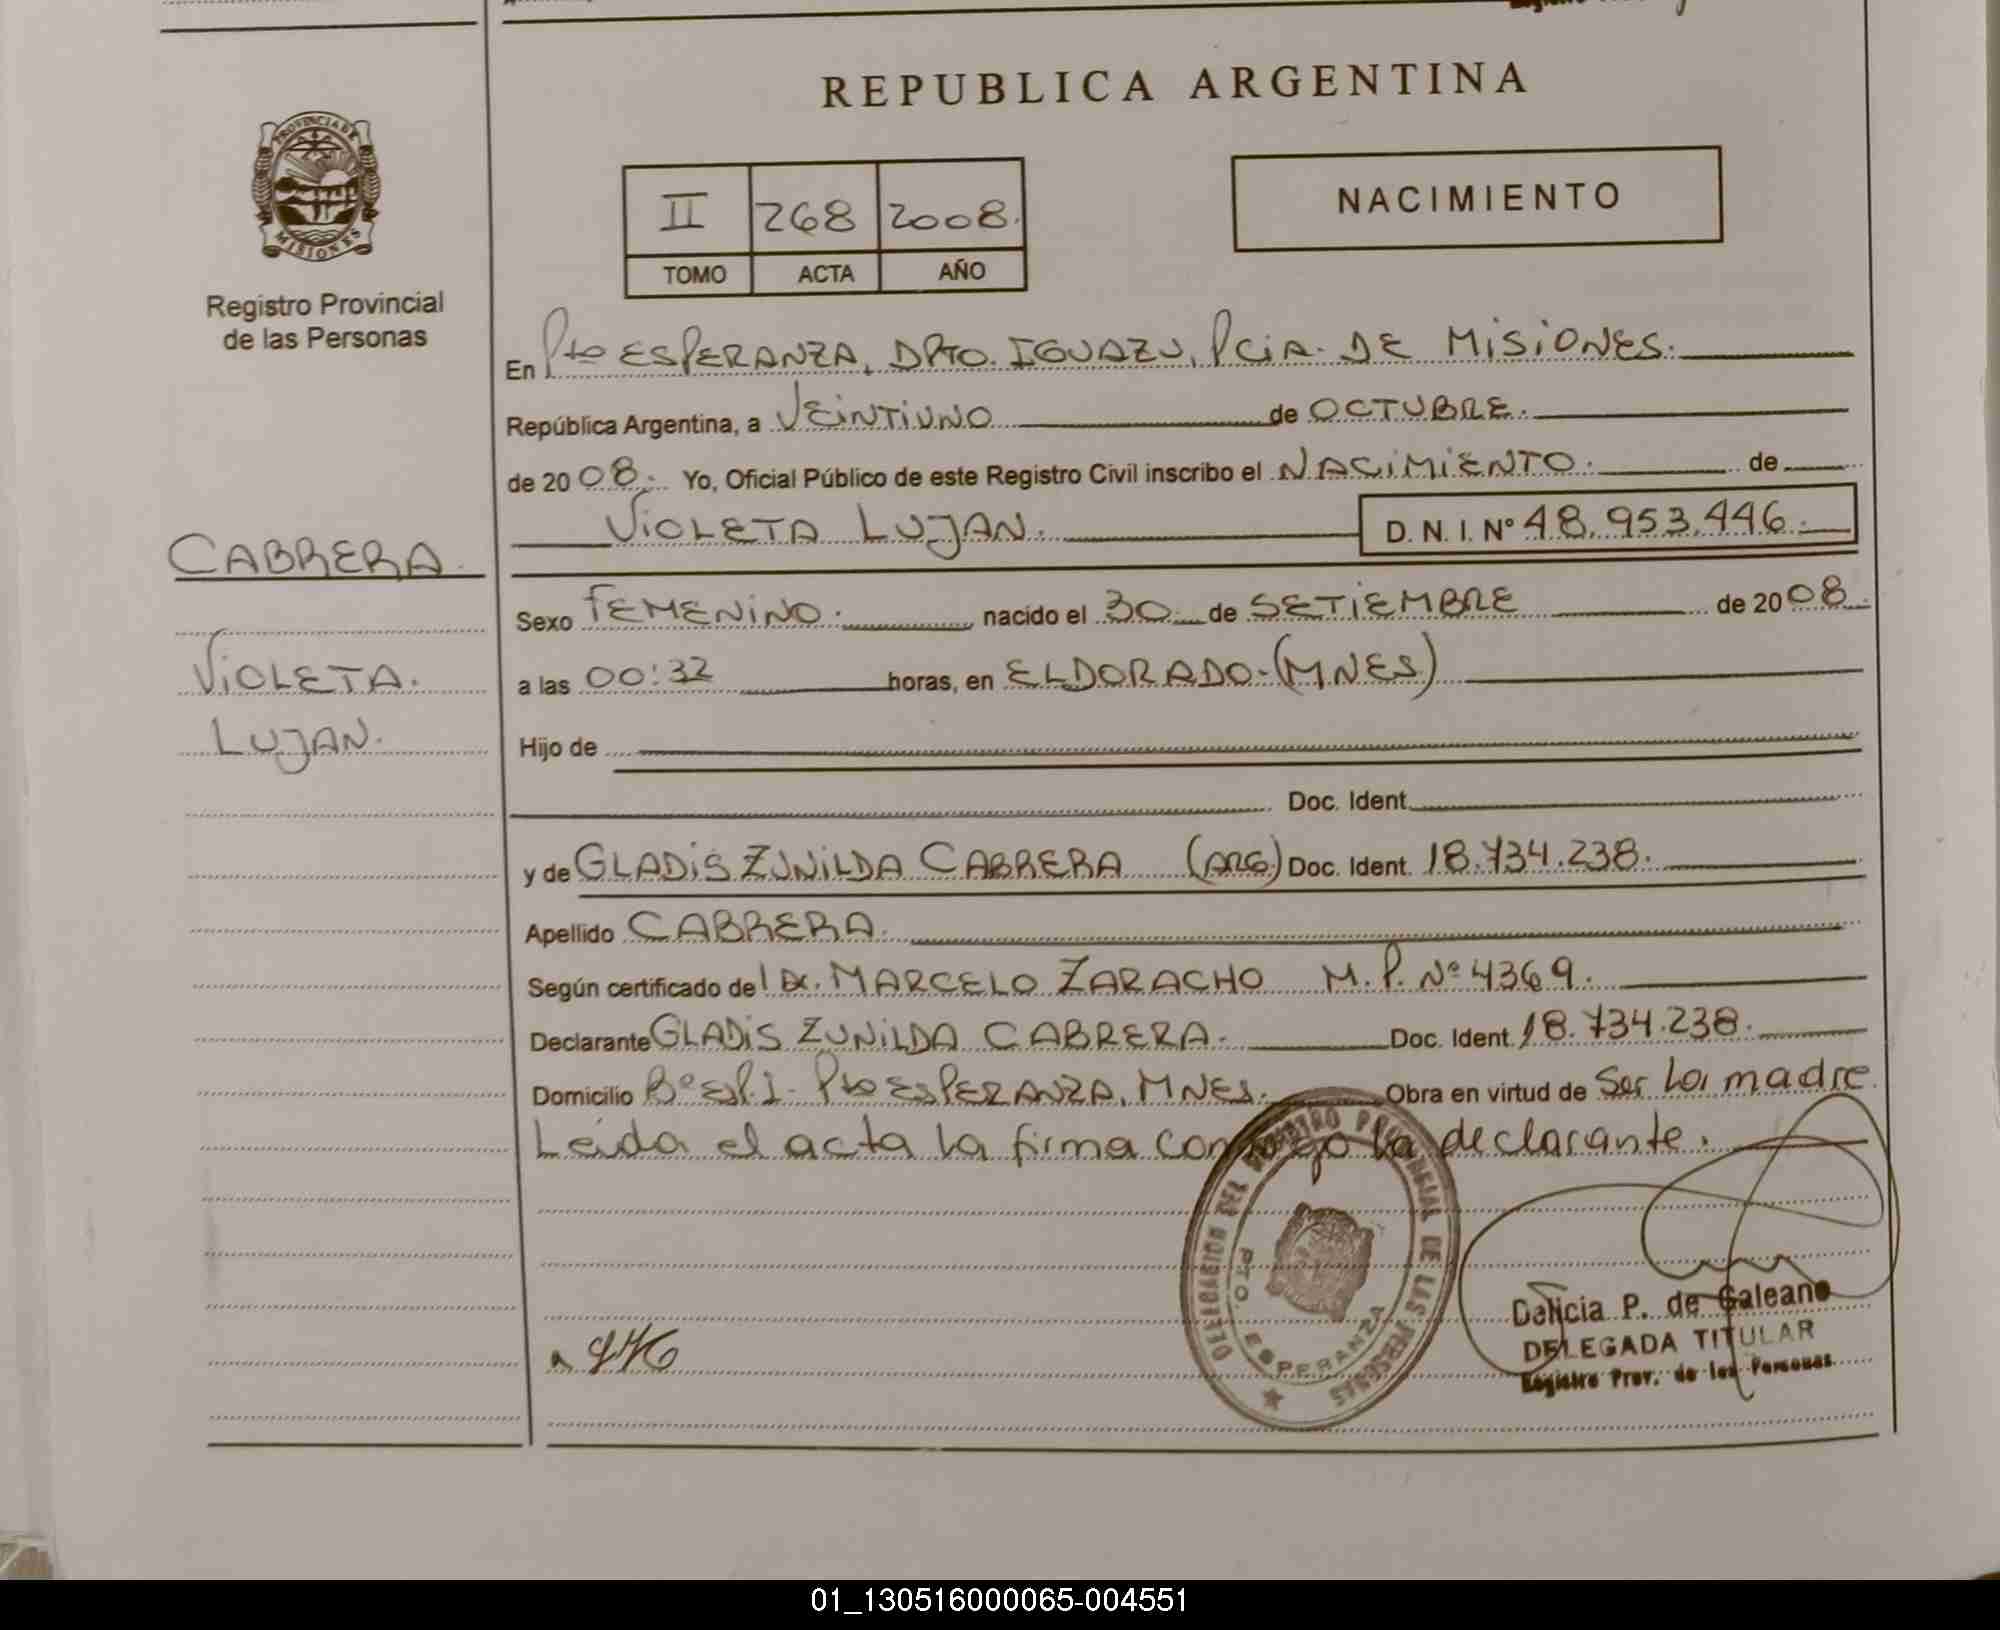 REPUBLICA ARGENTINA
PROVINCIA DE
MISIONES
Registro Provincial
de las Personas
II 268 2008.
TOMO ACTA AÑO
NACIMIENTO
En Pto ESPERANZA, DPTO. IGUAZU, PCiA. DE MiSiONES.
República Argentina, a VEiNTiUNO de OCTUBRE.
de 2008. Yo, Oficial Público de este Registro Civil inscribo el NACiMiENTO. de
ViOLETA LUJAN. D. N. I. Nº 48.953.446.
CABRERA.
ViOLETA.
LUJAN.
Sexo FEMENiNO. nacido el 30 de SETiEMBRE de 2008.
a las 00:32 horas, en ELDORADO-(MNES)
Hijo de
Doc. Ident.
y de GLADiS ZUNiLDA CABRERA (ARG) Doc. Ident. 18.734.238.
Apellido CABRERA.
Según certificado del DR. MARCELO ZARACHO M.P. Nº 4369.
Declarante GLADiS ZUNiLDA CABRERA. Doc. Ident. 18.734.238.
Domicilio Bº ESP. I- Pto ESPERANZA, MNES. Obra en virtud de Ser La madre.
Leida el acta la firma conmigo la declarante.
DELEGACION DEL REGISTRO PROVINCIAL DE LAS PERSONAS
PTO. ESPERANZA
Delicia P. de Galeano
DELEGADA TITULAR
Registro Prov. de las Personas
01_130516000065-004551